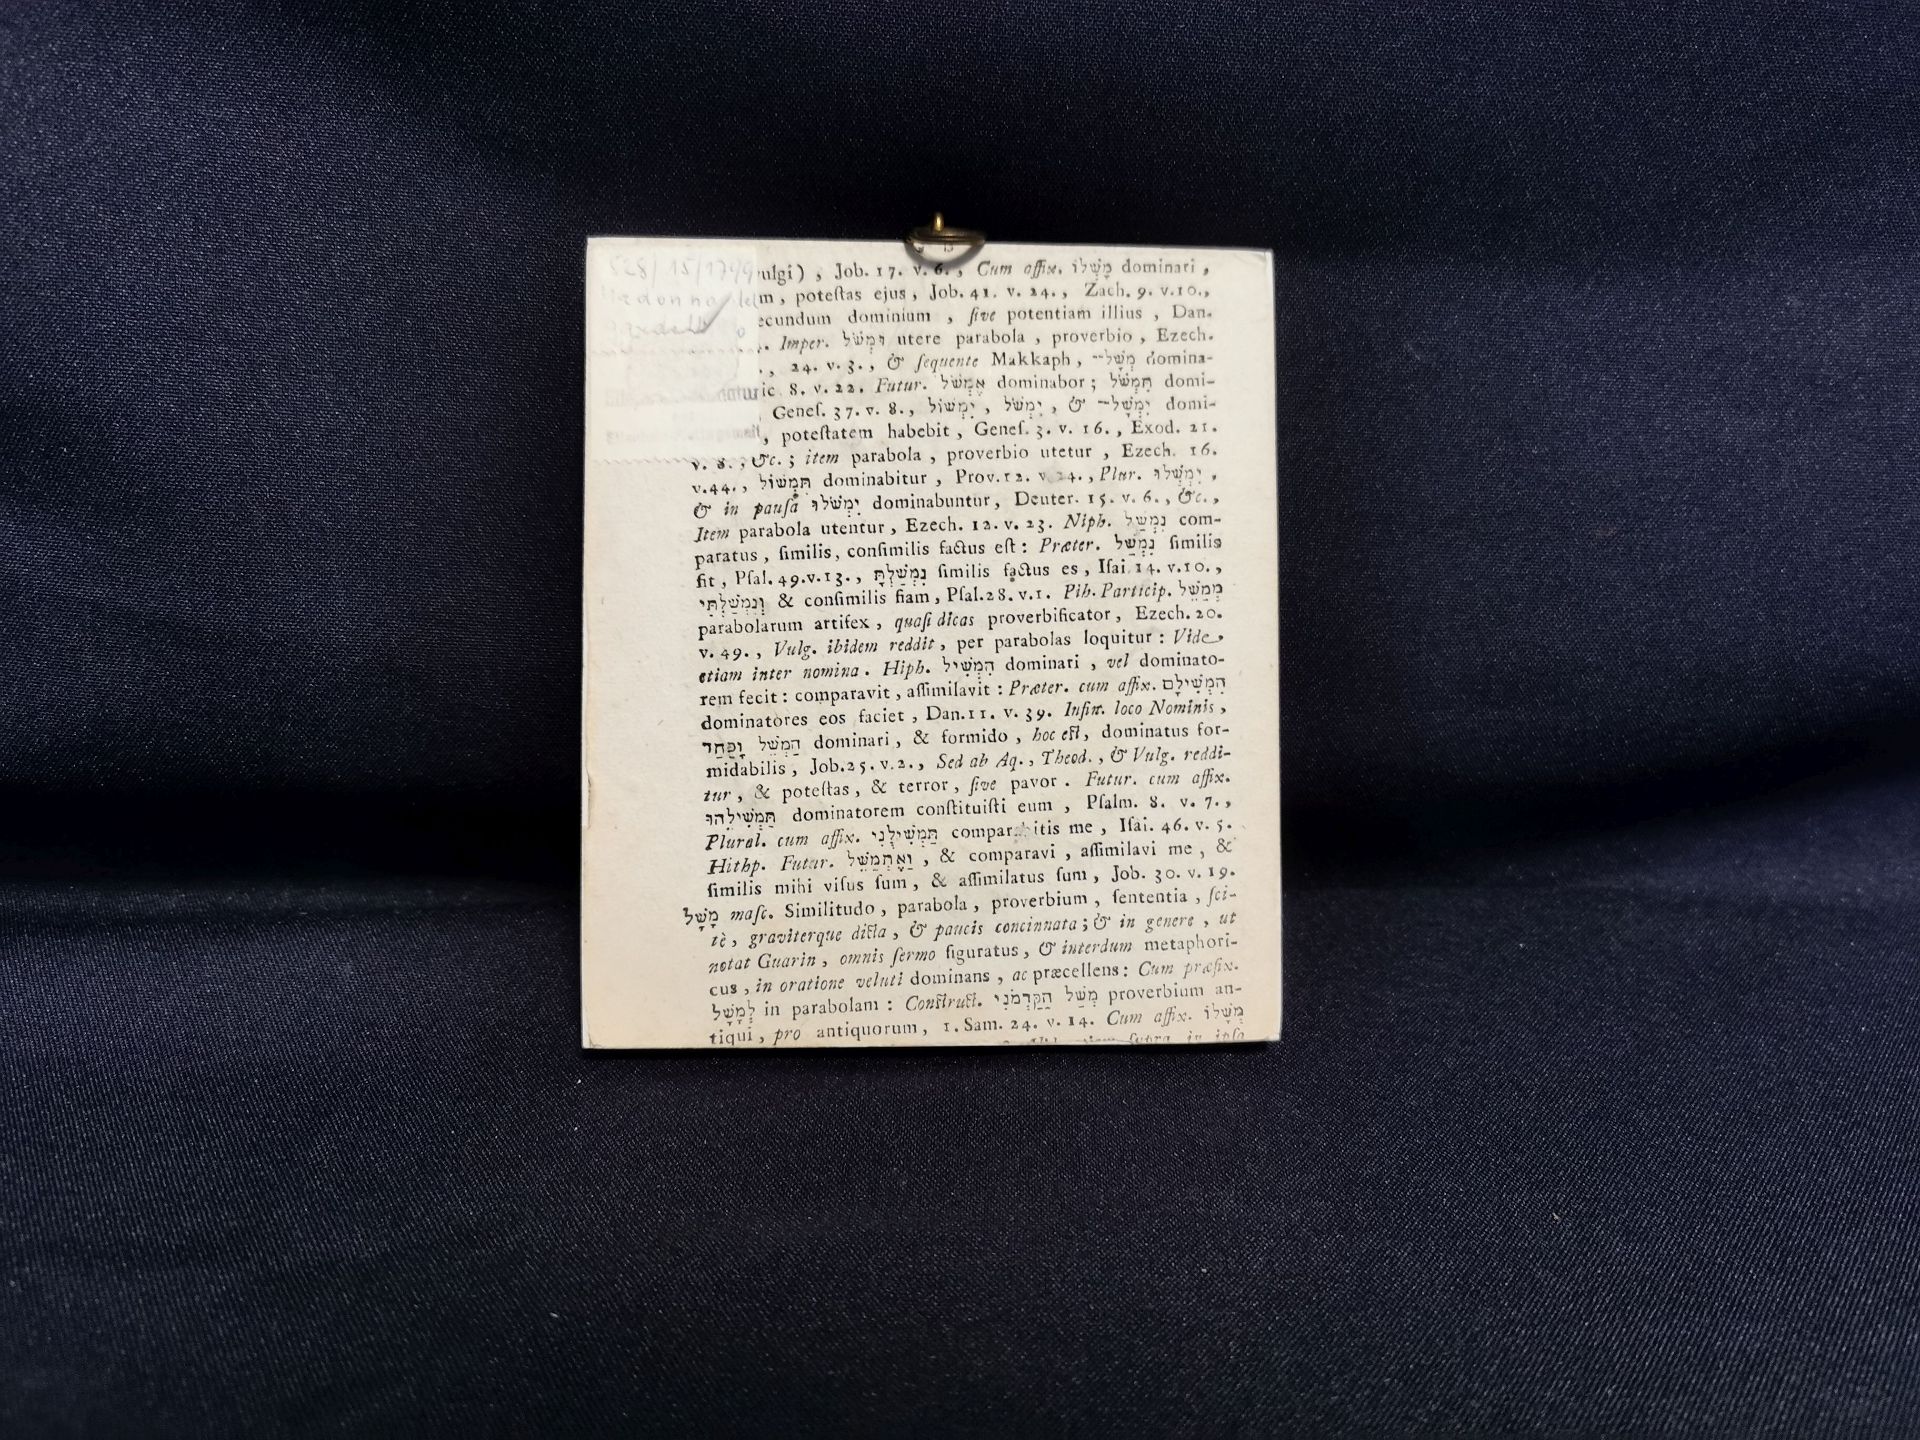 528/15/1799
Madonna del
vulgi) , Job. 17. v. 6. , Cum affix. מָשְׁלוֹ dominari ,
m , poteſtas ejus , Job. 41. v. 24. , Zach. 9. v.10.,
ecundum dominium , ſive potentiam illius , Dan.
. Imper. וּמְשֹׁל utere parabola , proverbio , Ezech.
., 24. v. 3. , & ſequente Makkaph , מְשָׁל־ domina-
ric 8. v. 22. Futur. אֶמְשֹׁל dominabor ; תִּמְשֹׁל domi-
Geneſ. 37. v. 8. , יִמְשׁוֹל , יִמְשֹׁל , & יִמְשָׁל־ domi-
, poteſtatem habebit , Geneſ. 3. v. 16. , Exod. 21.
v. 8. , &c. ; item parabola , proverbio utetur , Ezech. 16.
v.44. , תִּמְשׁוֹל dominabitur , Prov.12. v. 24. , Plur. יִמְשְׁלוּ ,
& in pauſa יִמְשֹׁלוּ dominabuntur, Deuter. 15. v. 6. , &c. ,
Item parabola utentur , Ezech. 12. v. 23. Niph. נִמְשַׁל com-
paratus , ſimilis, conſimilis factus eſt : Præter. נִמְשַׁל ſimilis
fit , Pſal. 49.v.13. , נִמְשַׁלְתָּ ſimilis factus es , Iſai. 14. v.10. ,
וְנִמְשַׁלְתִּי & conſimilis fiam , Pſal.28. v.1. Pih. Particip. מְמַשֵּׁל
parabolarum artifex , quaſi dicas proverbificator , Ezech. 20.
v. 49. , Vulg. ibidem reddit , per parabolas loquitur : Vide
etiam inter nomina . Hiph. הִמְשִׁיל dominari , vel dominato-
rem fecit : comparavit , aſſimilavit : Præter. cum affix. הִמְשִׁילָם
dominatores eos faciet , Dan.11. v. 39. Infin. loco Nominis ,
הַמְשֵׁל וָפַחַד dominari , & formido , hoc eſt, dominatus for-
midabilis , Job.25. v.2. , Sed ab Aq. , Theod. , & Vulg. reddi-
tur , & poteſtas , & terror , ſive pavor . Futur. cum affix.
תַּמְשִׁילֵהוּ dominatorem conſtituiſti eum , Pſalm. 8. v. 7. ,
Plural. cum affix. תַּמְשִׁילֻנִי comparabitis me , Iſai. 46. v. 5.
Hithp. Futur. וָאֶתְמַשֵּׁל , & comparavi , aſſimilavi me , &
ſimilis mihi viſus ſum , & aſſimilatus ſum , Job. 30. v. 19.
מָשָׁל maſc. Similitudo , parabola , proverbium , ſententia , ſci-
tè , graviterque dicta , & paucis concinnata ; & in genere , ut
notat Guarin , omnis ſermo figuratus , & interdum metaphori-
cus , in oratione veluti dominans , ac præcellens : Cum præfix.
לְמָשָׁל in parabolam : Conſtruct. מְשַׁל הַקַּדְמֹנִי proverbium an-
tiqui , pro antiquorum , 1. Sam. 24. v. 14. Cum affix. מְשָׁלוֹ
etiam ſupra in ipſo